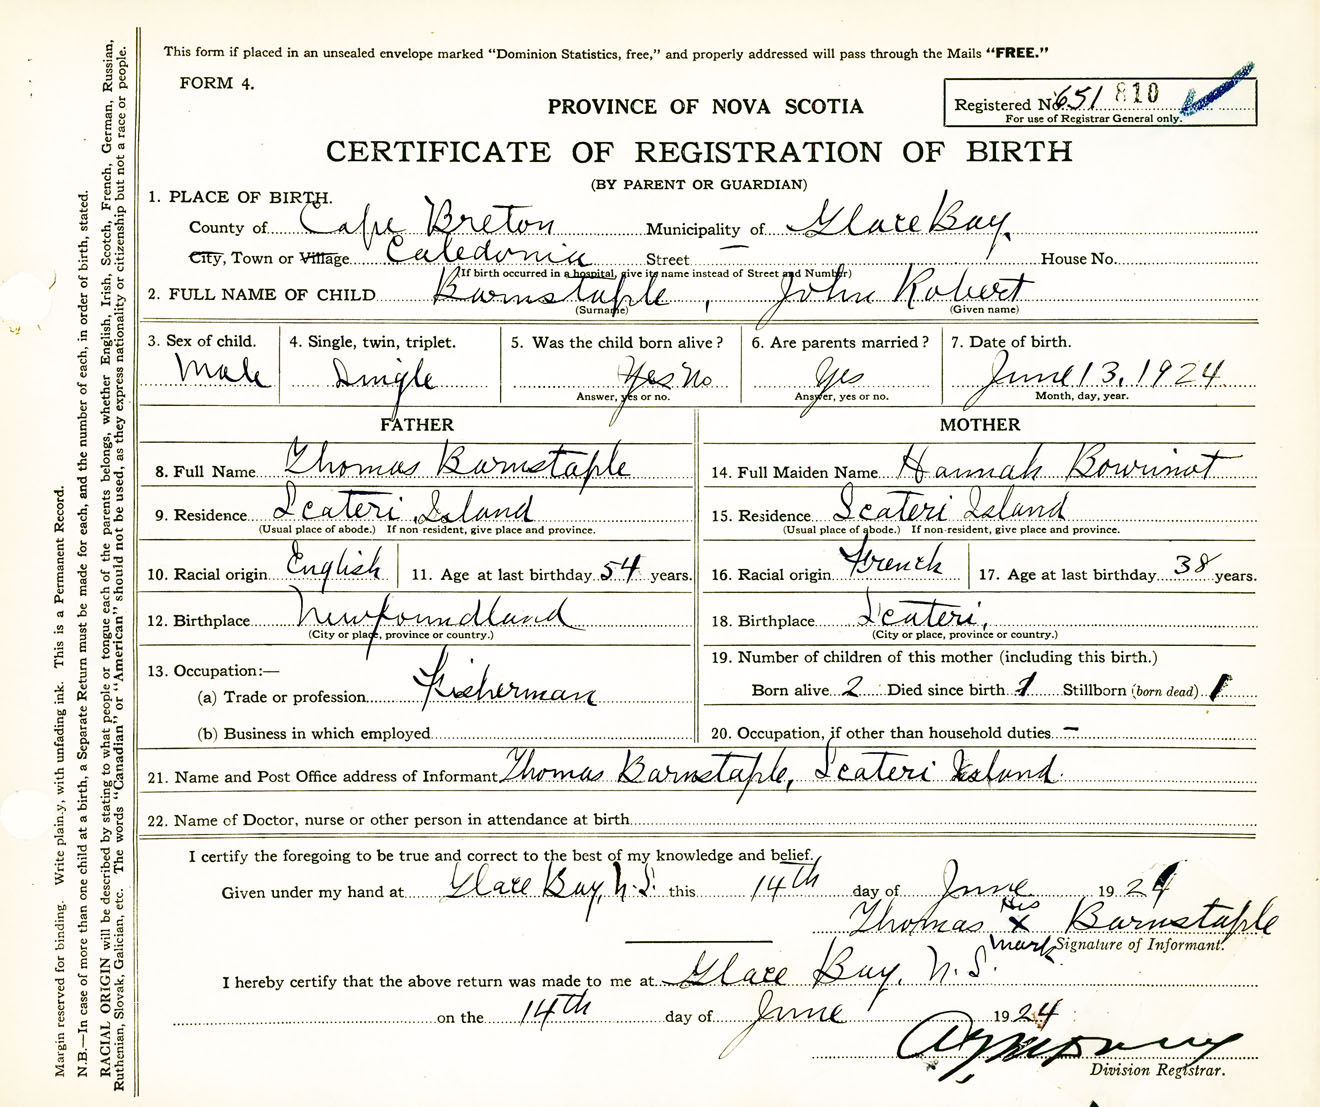 This form if placed in an unsealed envelope marked "Dominion Statistics, free," and properly addressed will pass through the Mails "FREE."
FORM 4.
PROVINCE OF NOVA SCOTIA
Registered No. 651 810
For use of Registrar General only.
CERTIFICATE OF REGISTRATION OF BIRTH
(BY PARENT OR GUARDIAN)
1. PLACE OF BIRTH.
County of Cape Breton Municipality of Glace Bay,
City, Town or Village Caledonia Street — House No.
(If birth occurred in a hospital, give its name instead of Street and Number)
2. FULL NAME OF CHILD Barnstaple, John Robert
(Surname) (Given name)
3. Sex of child. 4. Single, twin, triplet. 5. Was the child born alive? 6. Are parents married? 7. Date of birth.
Male Single Yes No Yes June 13, 1924
Answer, yes or no. Answer, yes or no. Month, day, year.
FATHER MOTHER
8. Full Name Thomas Barnstaple 14. Full Maiden Name Hannah Bowinot
9. Residence Scateri Island 15. Residence Scateri Island
(Usual place of abode.) If non-resident, give place and province. (Usual place of abode.) If non-resident, give place and province.
10. Racial origin English 11. Age at last birthday 54 years. 16. Racial origin French 17. Age at last birthday 38 years.
12. Birthplace Newfoundland 18. Birthplace Scateri,
(City or place, province or country.) (City or place, province or country.)
13. Occupation:— 19. Number of children of this mother (including this birth.)
(a) Trade or profession Fisherman Born alive 2 Died since birth 1 Stillborn (born dead) 1
(b) Business in which employed 20. Occupation, if other than household duties —
21. Name and Post Office address of Informant Thomas Barnstaple, Scateri Island
22. Name of Doctor, nurse or other person in attendance at birth
I certify the foregoing to be true and correct to the best of my knowledge and belief.
Given under my hand at Glace Bay, N.S. this 14th day of June 1924
Thomas his X mark Barnstaple
Signature of Informant.
I hereby certify that the above return was made to me at Glace Bay, N.S.
on the 14th day of June 1924
Division Registrar.
Margin reserved for binding. Write plainly, with unfading ink. This is a Permanent Record.
N.B.—In case of more than one child at a birth, a Separate Return must be made for each, and the number of each, in order of birth, stated.
RACIAL ORIGIN will be described by stating to what people or tongue each of the parents belongs, whether English, Irish, Scotch, French, German, Russian,
Ruthenian, Slovak, Galician, etc. The words "Canadian" or "American" should not be used, as they express nationality or citizenship but not a race or people.